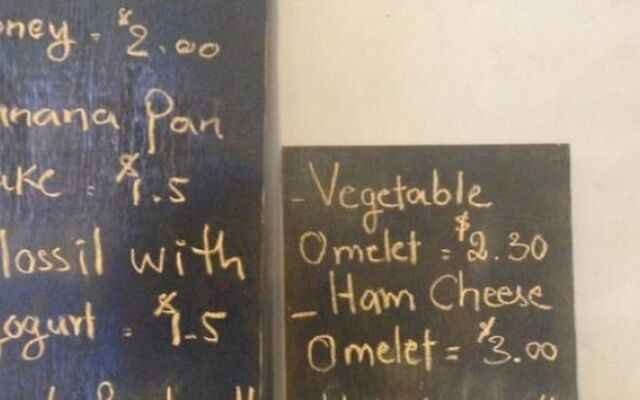 oney = $2.00
anana Pan
ake = $1.5
lossil with
yogurt = $1.5
- Vegetable
Omelet = $2.30
- Ham Cheese
Omelet = $3.00